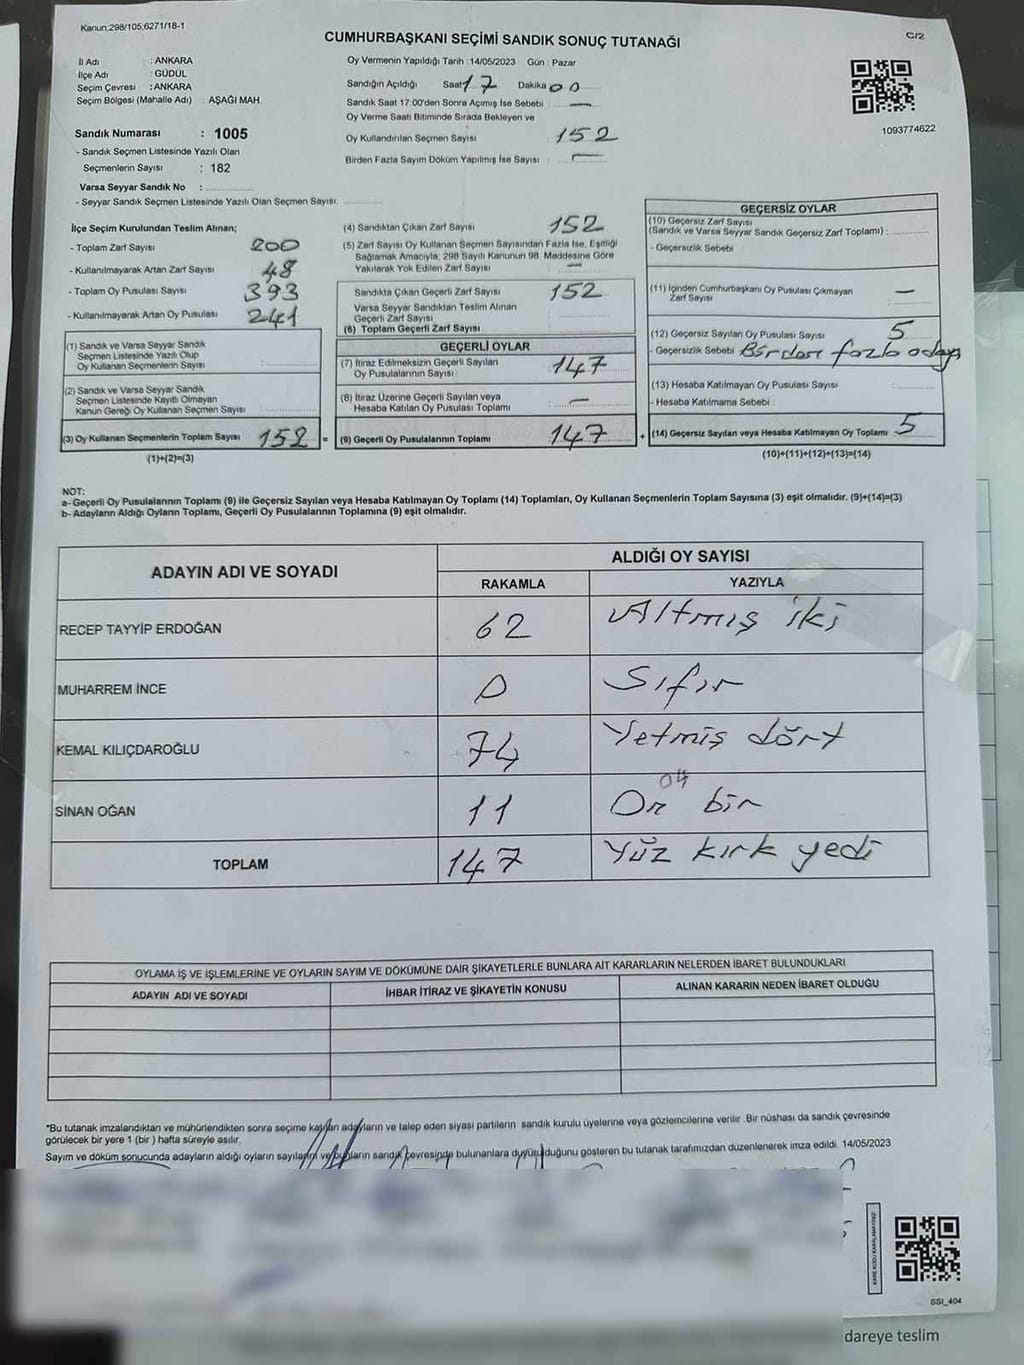 Kanun;298/105;6271/18-1
CUMHURBAŞKANI SEÇİMİ SANDIK SONUÇ TUTANAĞI
C/2
İl Adı : ANKARA
İlçe Adı : GÜDÜL
Seçim Çevresi : ANKARA
Seçim Bölgesi (Mahalle Adı) : AŞAĞI MAH.
Sandık Numarası : 1005
- Sandık Seçmen Listesinde Yazılı Olan
Seçmenlerin Sayısı : 182
Varsa Seyyar Sandık No :
- Seyyar Sandık Seçmen Listesinde Yazılı Olan Seçmen Sayısı:
Oy Vermenin Yapıldığı Tarih : 14/05/2023 Gün : Pazar
Sandığın Açıldığı Saat 17 Dakika 00
Sandık Saat 17.00'den Sonra Açımış İse Sebebi : —
Oy Verme Saati Bitiminde Sırada Bekleyen ve
Oy Kullandırılan Seçmen Sayısı : 152
Birden Fazla Sayım Döküm Yapılmış İse Sayısı : —
1093774622
İlçe Seçim Kurulundan Teslim Alınan;
- Toplam Zarf Sayısı 200
- Kullanılmayarak Artan Zarf Sayısı 48
- Toplam Oy Pusulası Sayısı 393
- Kullanılmayarak Artan Oy Pusulası 241
(1) Sandık ve Varsa Seyyar Sandık
Seçmen Listesinde Yazılı Olup
Oy Kullanan Seçmenlerin Sayısı
(2) Sandık ve Varsa Seyyar Sandık
Seçmen Listesinde Kayıtlı Olmayan
Kanun Gereği Oy Kullanan Seçmen Sayısı
(3) Oy Kullanan Seçmenlerin Toplam Sayısı 152 =
(1)+(2)=(3)
(4) Sandıktan Çıkan Zarf Sayısı 152
(5) Zarf Sayısı Oy Kullanan Seçmen Sayısından Fazla İse, Eşitliği
Sağlamak Amacıyla; 298 Sayılı Kanunun 98. Maddesine Göre
Yakılarak Yok Edilen Zarf Sayısı : —
Sandıkta Çıkan Geçerli Zarf Sayısı 152
Varsa Seyyar Sandıktan Teslim Alınan
Geçerli Zarf Sayısı
(6) Toplam Geçerli Zarf Sayısı
GEÇERLİ OYLAR
(7) İtiraz Edilmeksizin Geçerli Sayılan
Oy Pusulalarının Sayısı 147
(8) İtiraz Üzerine Geçerli Sayılan veya
Hesaba Katılan Oy Pusulası Toplamı —
(9) Geçerli Oy Pusulalarının Toplamı 147 +
GEÇERSİZ OYLAR
(10) Geçersiz Zarf Sayısı
(Sandık ve Varsa Seyyar Sandık Geçersiz Zarf Toplamı) :
- Geçersizlik Sebebi
(11) İçinden Cumhurbaşkanı Oy Pusulası Çıkmayan
Zarf Sayısı —
(12) Geçersiz Sayılan Oy Pusulası Sayısı 5
- Geçersizlik Sebebi Birden fazla aday
(13) Hesaba Katılmayan Oy Pusulası Sayısı
- Hesaba Katılmama Sebebi :
(14) Geçersiz Sayılan veya Hesaba Katılmayan Oy Toplamı 5
(10)+(11)+(12)+(13)=(14)
NOT:
a- Geçerli Oy Pusulalarının Toplamı (9) ile Geçersiz Sayılan veya Hesaba Katılmayan Oy Toplamı (14) Toplamları, Oy Kullanan Seçmenlerin Toplam Sayısına (3) eşit olmalıdır. (9)+(14)=(3)
b- Adayların Aldığı Oyların Toplamı, Geçerli Oy Pusulalarının Toplamına (9) eşit olmalıdır.
ADAYIN ADI VE SOYADI
ALDIĞI OY SAYISI
RAKAMLA YAZIYLA
RECEP TAYYİP ERDOĞAN 62 Altmış iki
MUHARREM İNCE 0 Sıfır
KEMAL KILIÇDAROĞLU 74 Yetmiş dört
SİNAN OĞAN 11 On bir
TOPLAM 147 Yüz kırk yedi
OYLAMA İŞ VE İŞLEMLERİNE VE OYLARIN SAYIM VE DÖKÜMÜNE DAİR ŞİKAYETLERLE BUNLARA AİT KARARLARIN NELERDEN İBARET BULUNDUKLARI
ADAYIN ADI VE SOYADI İHBAR İTİRAZ VE ŞİKAYETİN KONUSU ALINAN KARARIN NEDEN İBARET OLDUĞU
*Bu tutanak imzalandıktan ve mühürlendikten sonra seçime katılan adayların ve talep eden siyasi partilerin sandık kurulu üyelerine veya gözlemcilerine verilir. Bir nüshası da sandık çevresinde
görülecek bir yere 1 (bir ) hafta süreyle asılır.
Sayım ve döküm sonucunda adayların aldığı oyların sayılarını ve bunların sandık çevresinde bulunanlara duyurulduğunu gösteren bu tutanak tarafımızdan düzenlenerek imza edildi. 14/05/2023
SSI_404
dareye teslim